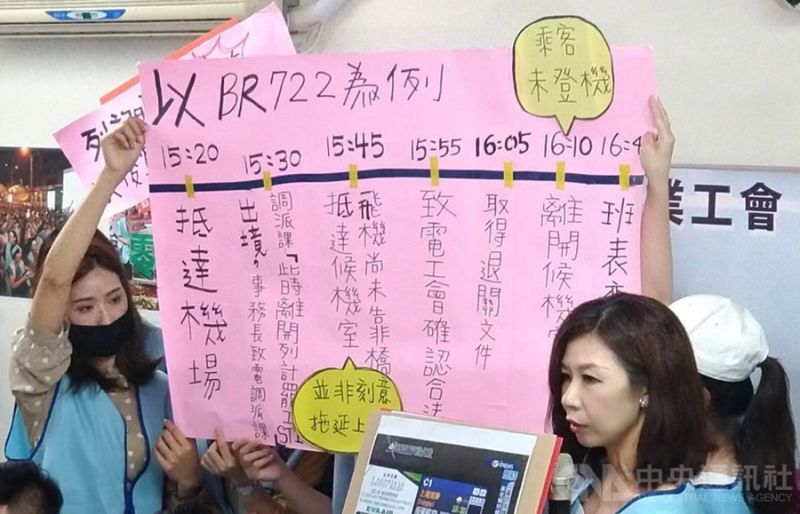 以BR722為例
乘客
未登機
15:20
15:30
15:45
15:55
16:05
16:10
抵達機場
出境，事務長致電調派課
調派課「此時離開列計罷工
抵達候機室
飛機尚未靠橋
致電工會確認合法
取得退關文件
離開候機
班表
並非刻意
拖延上
業工會
C1
中央通訊社
CENTRAL NEWS AGENCY